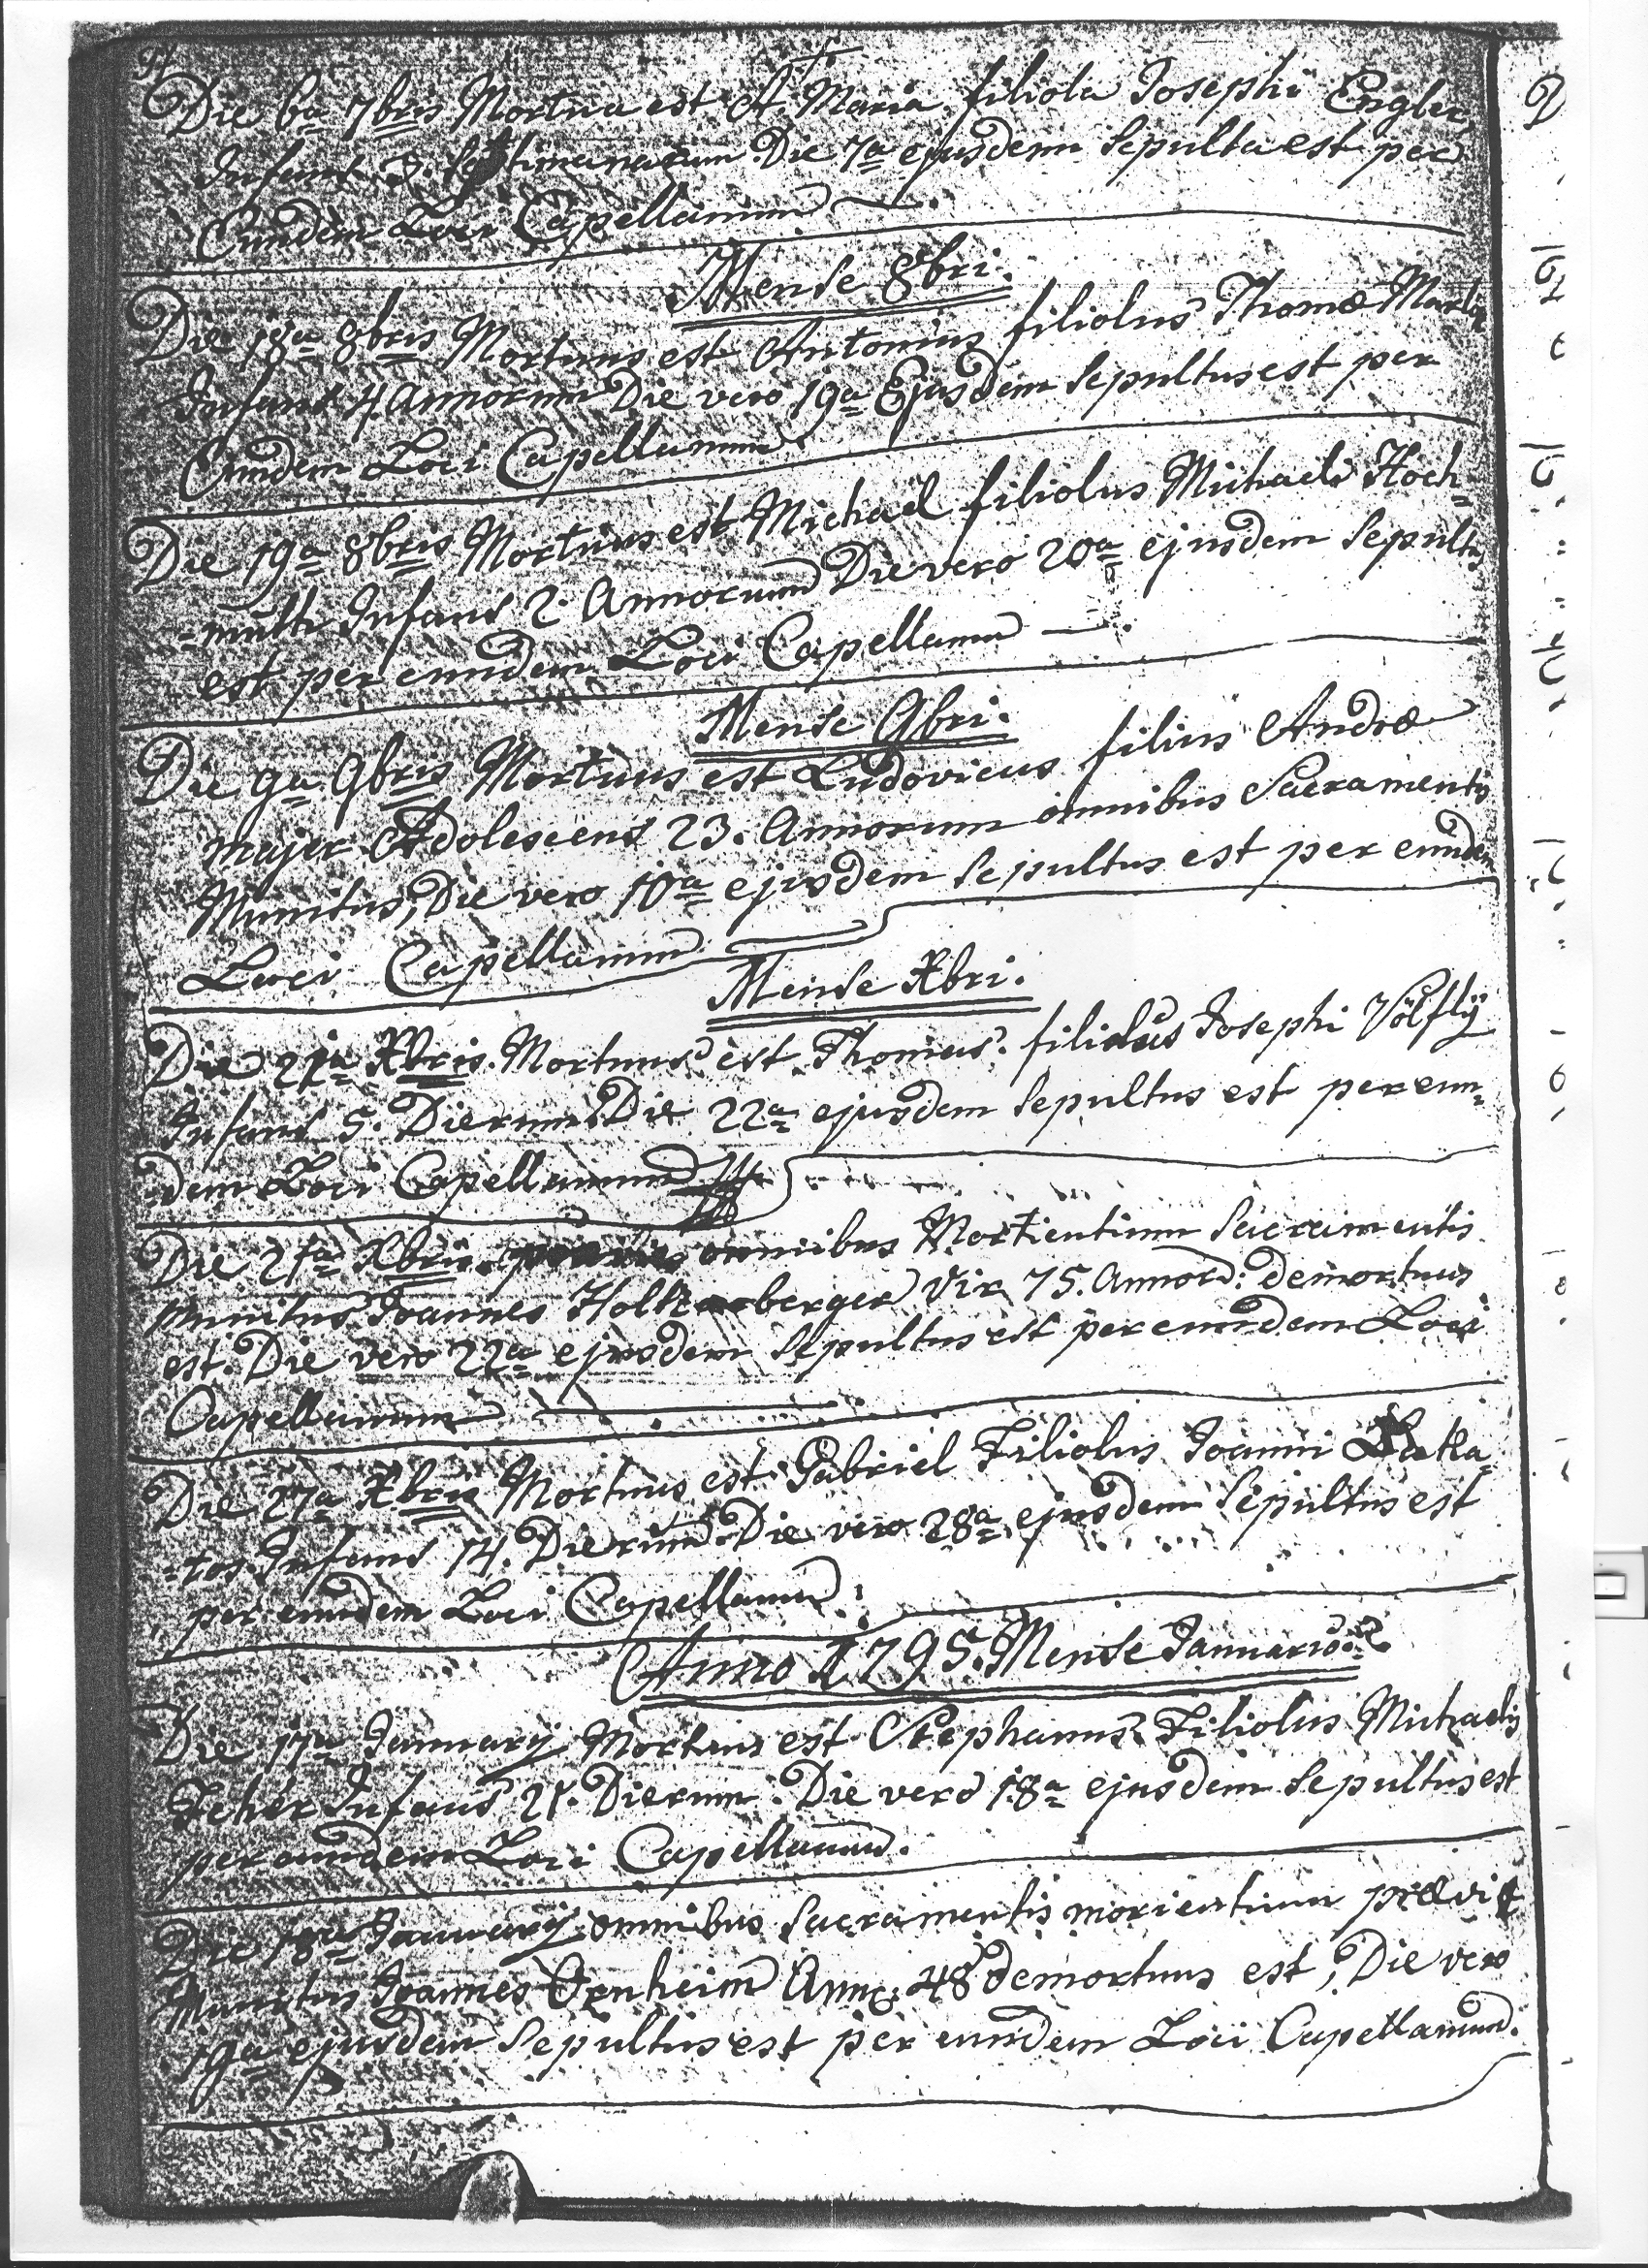 Die 6a 7bris Mortua est A. Maria filiola Josephi Engler,
Infans 3. Septimanarum Die 7a ejusdem Sepulta est per
Eundem Loci Capellanum
Mense 8bri.
Die 18a 8bris Mortuus est Antonius filiolus Thomæ
Infans 4. Annorum Die vero 19a Ejusdem Sepultus est per
Eundem Loci Capellanum
Die 19a 8bris Mortuus est Michael filiolus Michaeli Hoch=
=multr Infans 2. Annorum Die vero 20a ejusdem Sepultus
est per eundem Loci Capellanum
Mense 9bri.
Die 9a 9bris Mortuus est Ludovicus filius Andreæ
Majer Adolescens 23. Annorum omnibus Sacramentis
Munitus, Die vero 10a ejusdem Sepultus est per eundem
Loci Capellanum
Mense Xbri.
Die 21a Xbris. Mortuus est Thomas. filiolus Josephi Völfly
Infans 5. Dierum. Die 22a ejusdem Sepultus est per eun=
dem Loci Capellanum
Die 21a Xbris omnibus Mortientium Sacramentis
munitus Joannes berger Vir 75. Annor: demortuus
est. Die vero 22a ejusdem Sepultus est per eundem Loci
Capellanum
Die 27a Xbris Mortuus est Gabriel Filiolus Joanni Laka=
=tos Infans 14. Dierum Die vero 28a ejusdem Sepultus est
per eundem Loci Capellanum.
Anno 1795. Mense Januario.
Die 17a January Mortuus est Stephanus Filiolus Michaelis
Fehér Infans 21. Dierum. Die vero 18a ejusdem Sepultus est
per eundem Loci Capellanum.
Die 18a January omnibus Sacramentis morientium prævie
Munitus Joannes Ornheim Ann: 48 demortuus est, Die vero
19a ejusdem Sepultus est per eundem Loci Capellanum.